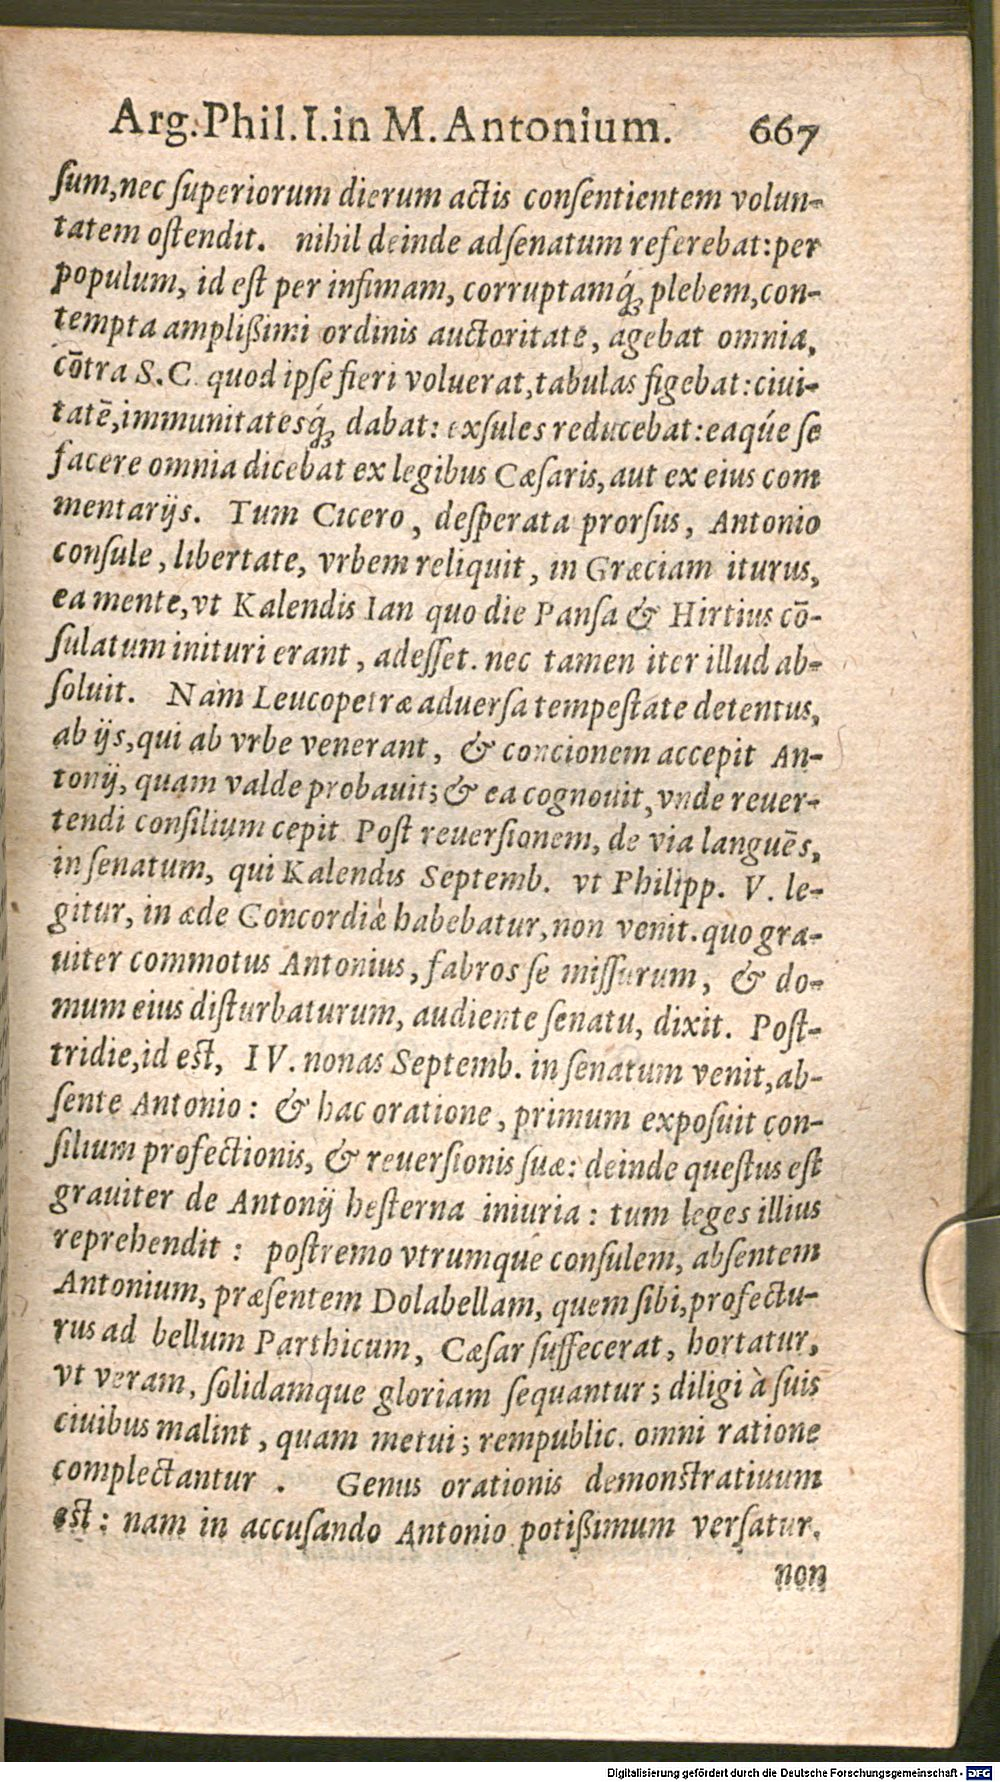 Arg. Phil. I. in M. Antonium. 667
ſum, nec ſuperiorum dierum actis conſentientem volun-
tatem oſtendit. nihil deinde ad ſenatum referebat: per
populum, id eſt per infimam, corruptamq́; plebem, con-
tempta ampliſſimi ordinis auctoritate, agebat omnia,
cōtra S.C. quod ipſe fieri voluerat, tabulas figebat: ciui-
tatē, immunitatesq́; dabat: exſules reducebat: eaq́ue ſe
facere omnia dicebat ex legibus Cæſaris, aut ex eius com
mentarijs. Tum Cicero, deſperata prorſus, Antonio
conſule, libertate, vrbem reliquit, in Græciam iturus,
ea mente, vt Kalendis Ian quo die Panſa & Hirtius cō-
ſulatum inituri erant, adeſſet. nec tamen iter illud ab-
ſoluit. Nam Leucopetræ aduerſa tempeſtate detentus,
ab ijs, qui ab vrbe venerant, & concionem accepit An-
tonij, quam valde probauit; & ea cognouit, vnde reuer-
tendi conſilium cepit. Poſt reuerſionem, de via languēs,
in ſenatum, qui Kalendis Septemb. vt Philipp. V. le-
gitur, in æde Concordiæ habebatur, non venit. quo gra-
uiter commotus Antonius, fabros ſe miſſurum, & do-
mum eius diſturbaturum, audiente ſenatu, dixit. Poſt-
tridie, id eſt, IV. nonas Septemb. in ſenatum venit, ab-
ſente Antonio: & hac oratione, primum expoſuit con-
ſilium profectionis, & reuerſionis ſuæ: deinde queſtus eſt
grauiter de Antonij heſterna iniuria: tum leges illius
reprehendit: poſtremo vtrumque conſulem, abſentem
Antonium, præſentem Dolabellam, quem ſibi, profectu-
rus ad bellum Parthicum, Cæſar ſuffecerat, hortatur,
vt veram, ſolidamque gloriam ſequantur; diligi à ſuis
ciuibus malint, quam metui; rempublic. omni ratione
complectantur. Genus orationis demonſtratiuum
eſt: nam in accuſando Antonio potiſſimum verſatur.
non
Digitalisierung gefördert durch die Deutsche Forschungsgemeinschaft - DFG